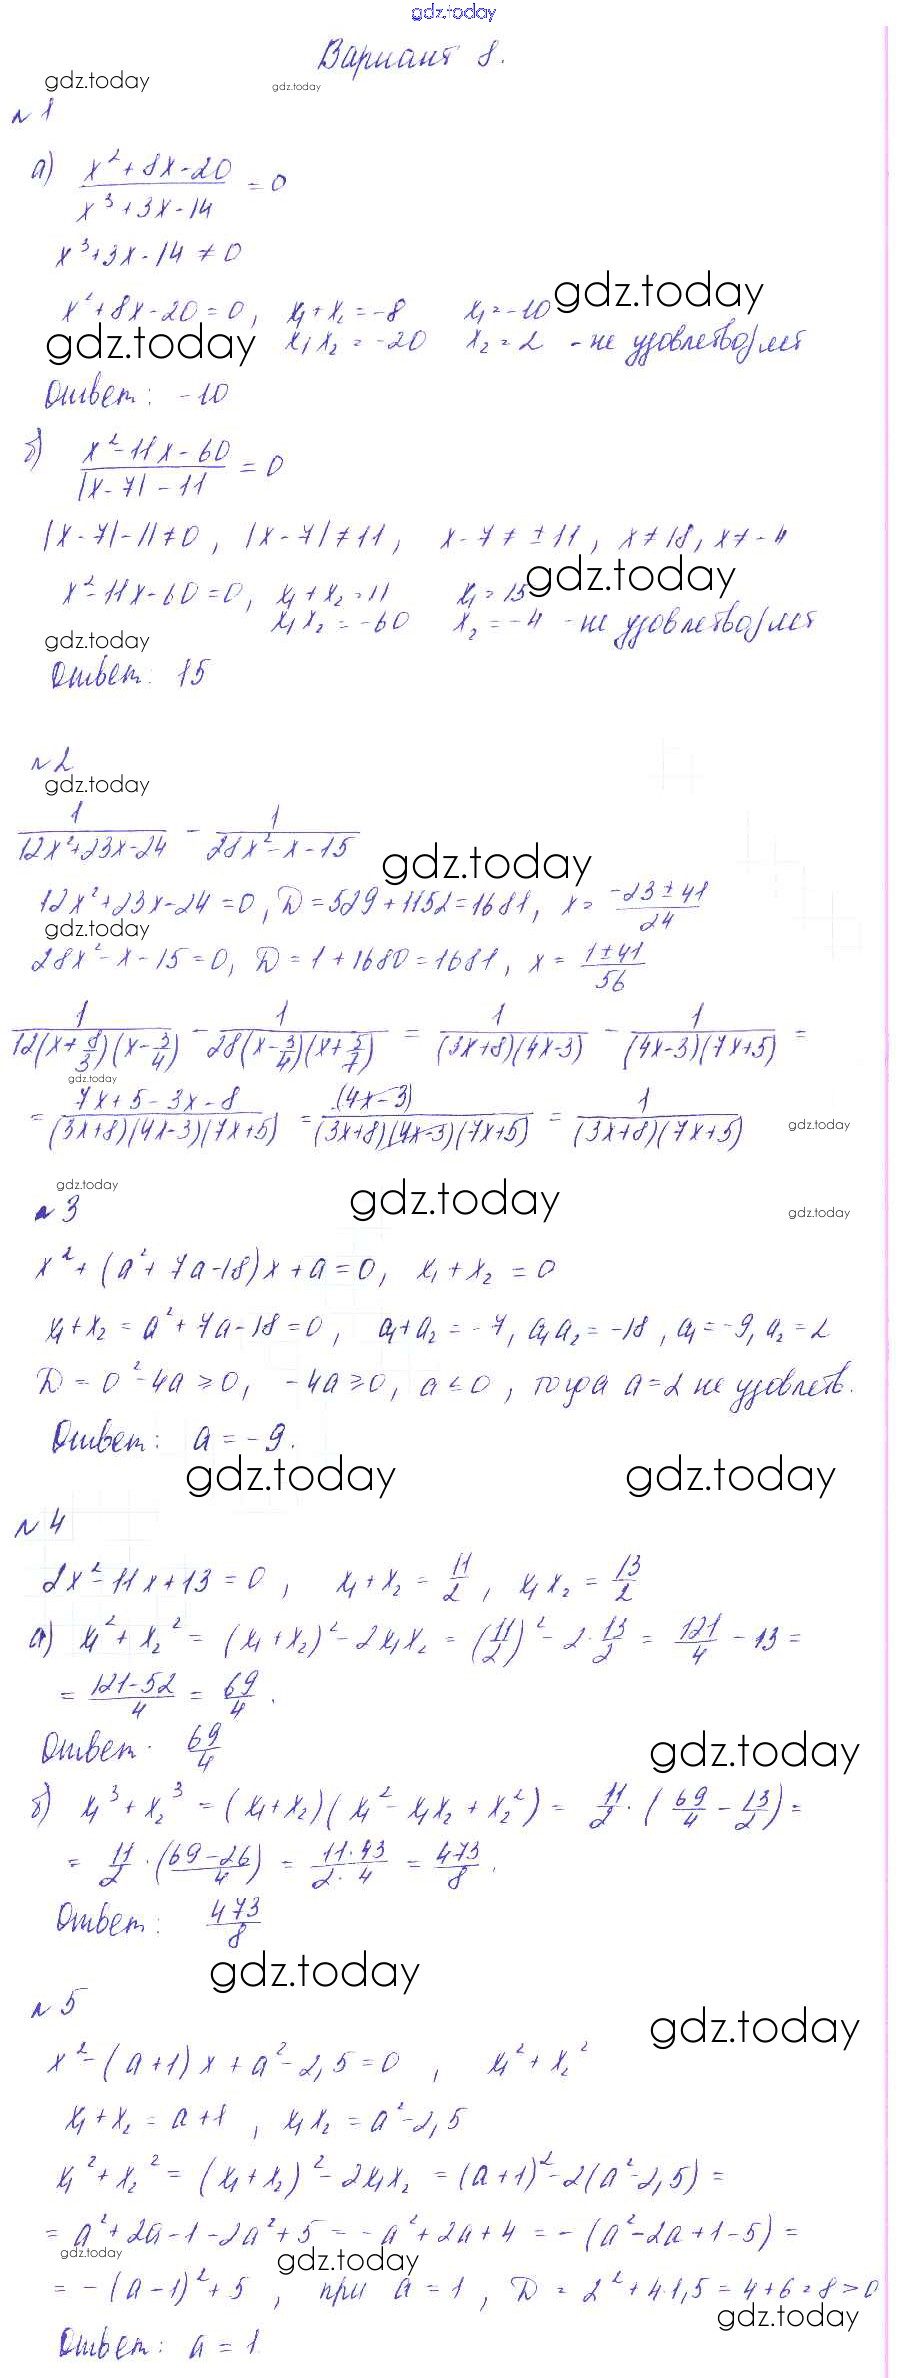 gdz.today
Вариант 8.
gdz.today gdz.today
№ 1
а) (x² + 8x - 20)/(x³ + 3x - 14) = 0
x³ + 3x - 14 ≠ 0
x² + 8x - 20 = 0, x₁ + x₂ = -8 x₁ = -10 gdz.today
gdz.today x₁x₂ = -20 x₂ = 2 - не удовлетворяет
Ответ: -10
б) (x² - 11x - 60)/(|x - 7| - 11) = 0
|x - 7| - 11 ≠ 0, |x - 7| ≠ 11, x - 7 ≠ ±11, x ≠ 18, x ≠ -4
x² - 11x - 60 = 0, x₁ + x₂ = 11 x₁ = 15 gdz.today
gdz.today x₁x₂ = -60 x₂ = -4 - не удовлетворяет
Ответ: 15
№ 2
gdz.today
1/(12x² + 23x - 24) - 1/(28x² - x - 15) gdz.today
12x² + 23x - 24 = 0, D = 529 + 1152 = 1681, x = (-23 ± 41)/24
gdz.today
28x² - x - 15 = 0, D = 1 + 1680 = 1681, x = (1 ± 41)/56
1/(12(x + 8/3)(x - 3/4)) - 1/(28(x - 3/4)(x + 5/7)) = 1/((3x+8)(4x-3)) - 1/((4x-3)(7x+5)) =
gdz.today
= (7x + 5 - 3x - 8)/((3x+8)(4x-3)(7x+5)) = (4x-3)/((3x+8)(4x-3)(7x+5)) = 1/((3x+8)(7x+5)) gdz.today
gdz.today gdz.today gdz.today
№ 3
x² + (a² + 7a - 18)x + a = 0, x₁ + x₂ = 0
x₁ + x₂ = a² + 7a - 18 = 0, a₁ + a₂ = -7, a₁a₂ = -18, a₁ = -9, a₂ = 2
D = 0² - 4a ≥ 0, -4a ≥ 0, a ≤ 0, тогда a = 2 не удовлетв.
Ответ: a = -9.
gdz.today gdz.today
№ 4
2x² - 11x + 13 = 0, x₁ + x₂ = 11/2, x₁x₂ = 13/2
а) x₁² + x₂² = (x₁ + x₂)² - 2x₁x₂ = (11/2)² - 2·13/2 = 121/4 - 13 =
= (121 - 52)/4 = 69/4.
Ответ. 69/4 gdz.today
б) x₁³ + x₂³ = (x₁ + x₂)(x₁² - x₁x₂ + x₂²) = 11/2 · (69/4 - 13/2) =
= 11/2 · ((69 - 26)/4) = (11·43)/(2·4) = 473/8.
Ответ: 473/8
gdz.today
№ 5
gdz.today
x² - (a+1)x + a² - 2,5 = 0, x₁² + x₂²
x₁ + x₂ = a + 1, x₁x₂ = a² - 2,5
x₁² + x₂² = (x₁ + x₂)² - 2x₁x₂ = (a+1)² - 2(a² - 2,5) =
= a² + 2a - 1 - 2a² + 5 = -a² + 2a + 4 = -(a² - 2a + 1 - 5) =
gdz.today gdz.today
= -(a - 1)² + 5, при a = 1, D = 2² + 4·1,5 = 4 + 6 = 8 > 0
gdz.today
Ответ: a = 1